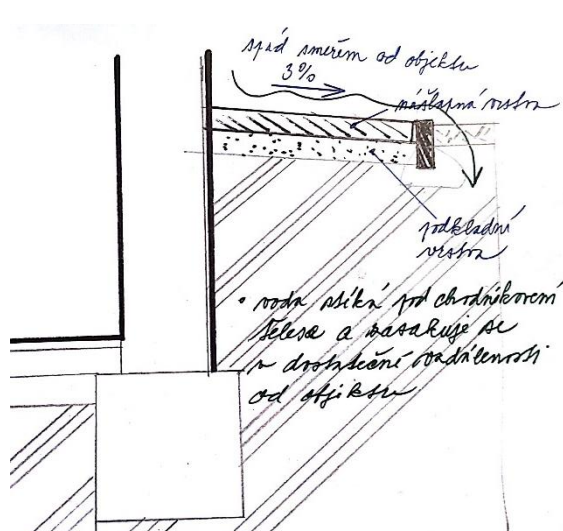 spád směrem od objektu
3%
nášlapná vrstva
podkladní
vrstva
• voda stéká pod chodníkovém
tělese a vsakuje se
v dostatečné vzdálenosti
od objektu